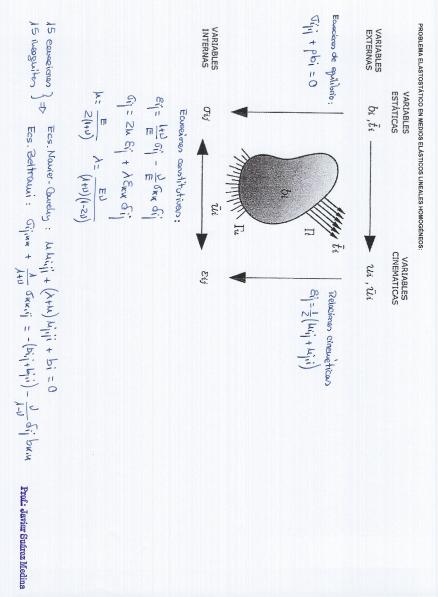 PROBLEMA ELASTOSTÁTICO EN MEDIOS ELÁSTICOS LINEALES HOMOGÉNEOS:
VARIABLES ESTÁTICAS
VARIABLES CINEMÁTICAS
VARIABLES EXTERNAS
bᵢ , t̄ᵢ
uᵢ , ūᵢ
Ecuaciones de equilibrio:
σij,j + ρbi = 0
t̄ᵢ
Γt
bᵢ
Γu
Relaciones cinemáticas
εij = 1/2 (ui,j + uj,i)
VARIABLES INTERNAS
σij
ūᵢ
εij
Ecuaciones constitutivas:
εij = (1+ν)/E σij - ν/E σkk δij
σij = 2μ εij + λ εkk δij
μ = E/2(1+ν) λ = Eν/(1+ν)(1-2ν)
15 ecuaciones
15 incógnitas } ⇒
Ecs. Navier-Cauchy: μ ui,jj + (λ+μ) uj,ji + bi = 0
Ecs. Beltrami: σij,kk + 1/(1+ν) σkk,ij = -(bi,j + bj,i) - ν/(1-ν) δij bk,k
Prof.: Javier Suárez Medina